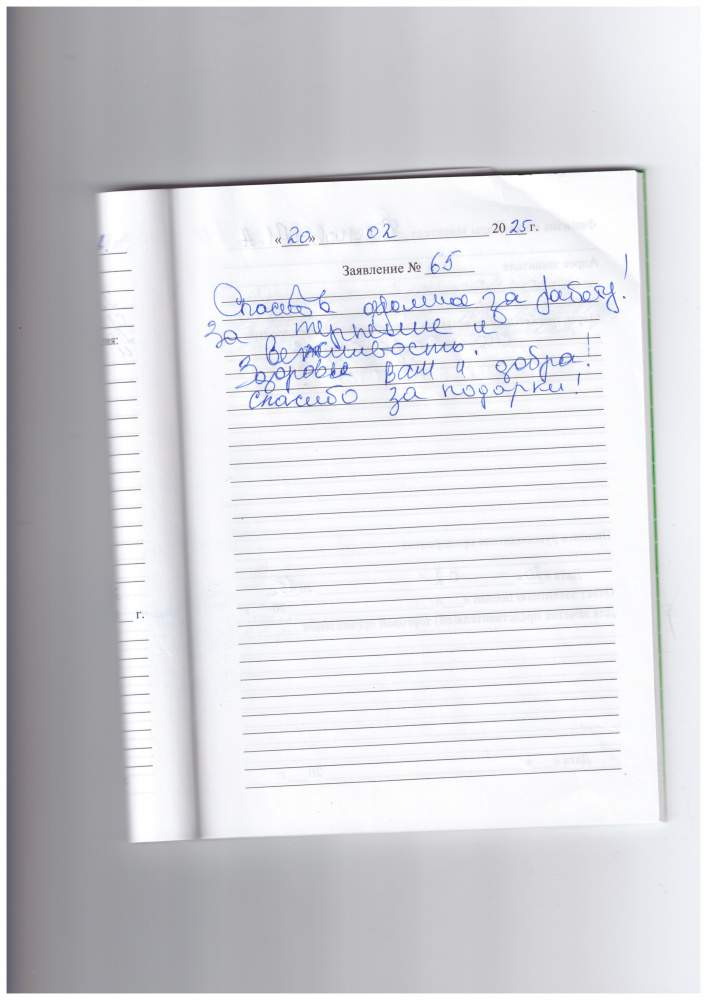 «20» 02 2025г.
Заявление № 65
Спасибо огромное за работу!
За терпение и
Вежливость.
Здоровья вам и добра!
Спасибо за подарки!
г.